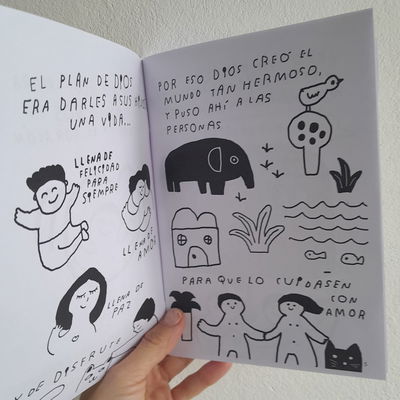 EL PLAN DE DIOS
ERA DARLES A SUS
UNA VIDA...
LLENA DE
FELICIDAD
PARA
SIEMPRE
LLENA DE
AMOR
LLENA DE
PAZ
Y DE DISFRUTE
POR ESO DIOS CREÓ EL
MUNDO TAN HERMOSO,
Y PUSO AHÍ A LAS
PERSONAS
PARA QUE LO CUIDASEN
CON
AMOR